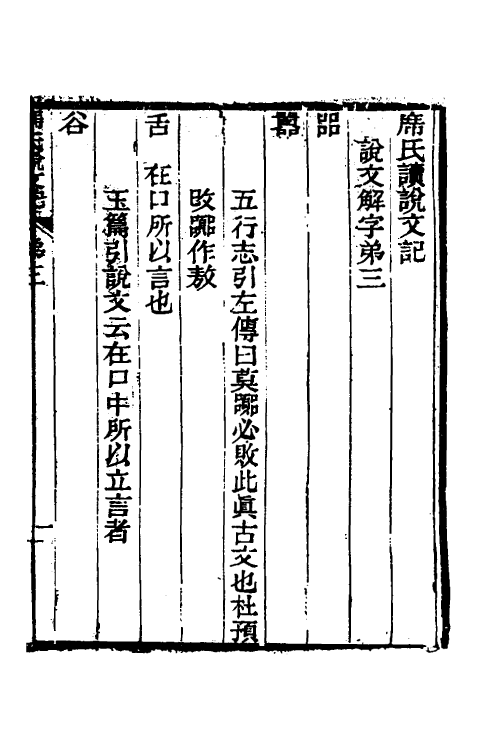 席氏讀說文記
說文解字弟三
㗊
囂
五行志引左傳曰莫嚻必敗此眞古文也杜預
改嚻作敖
舌　在口所以言也
玉篇引說文云在口中所以立言者
谷
席氏說文記　弟三　一